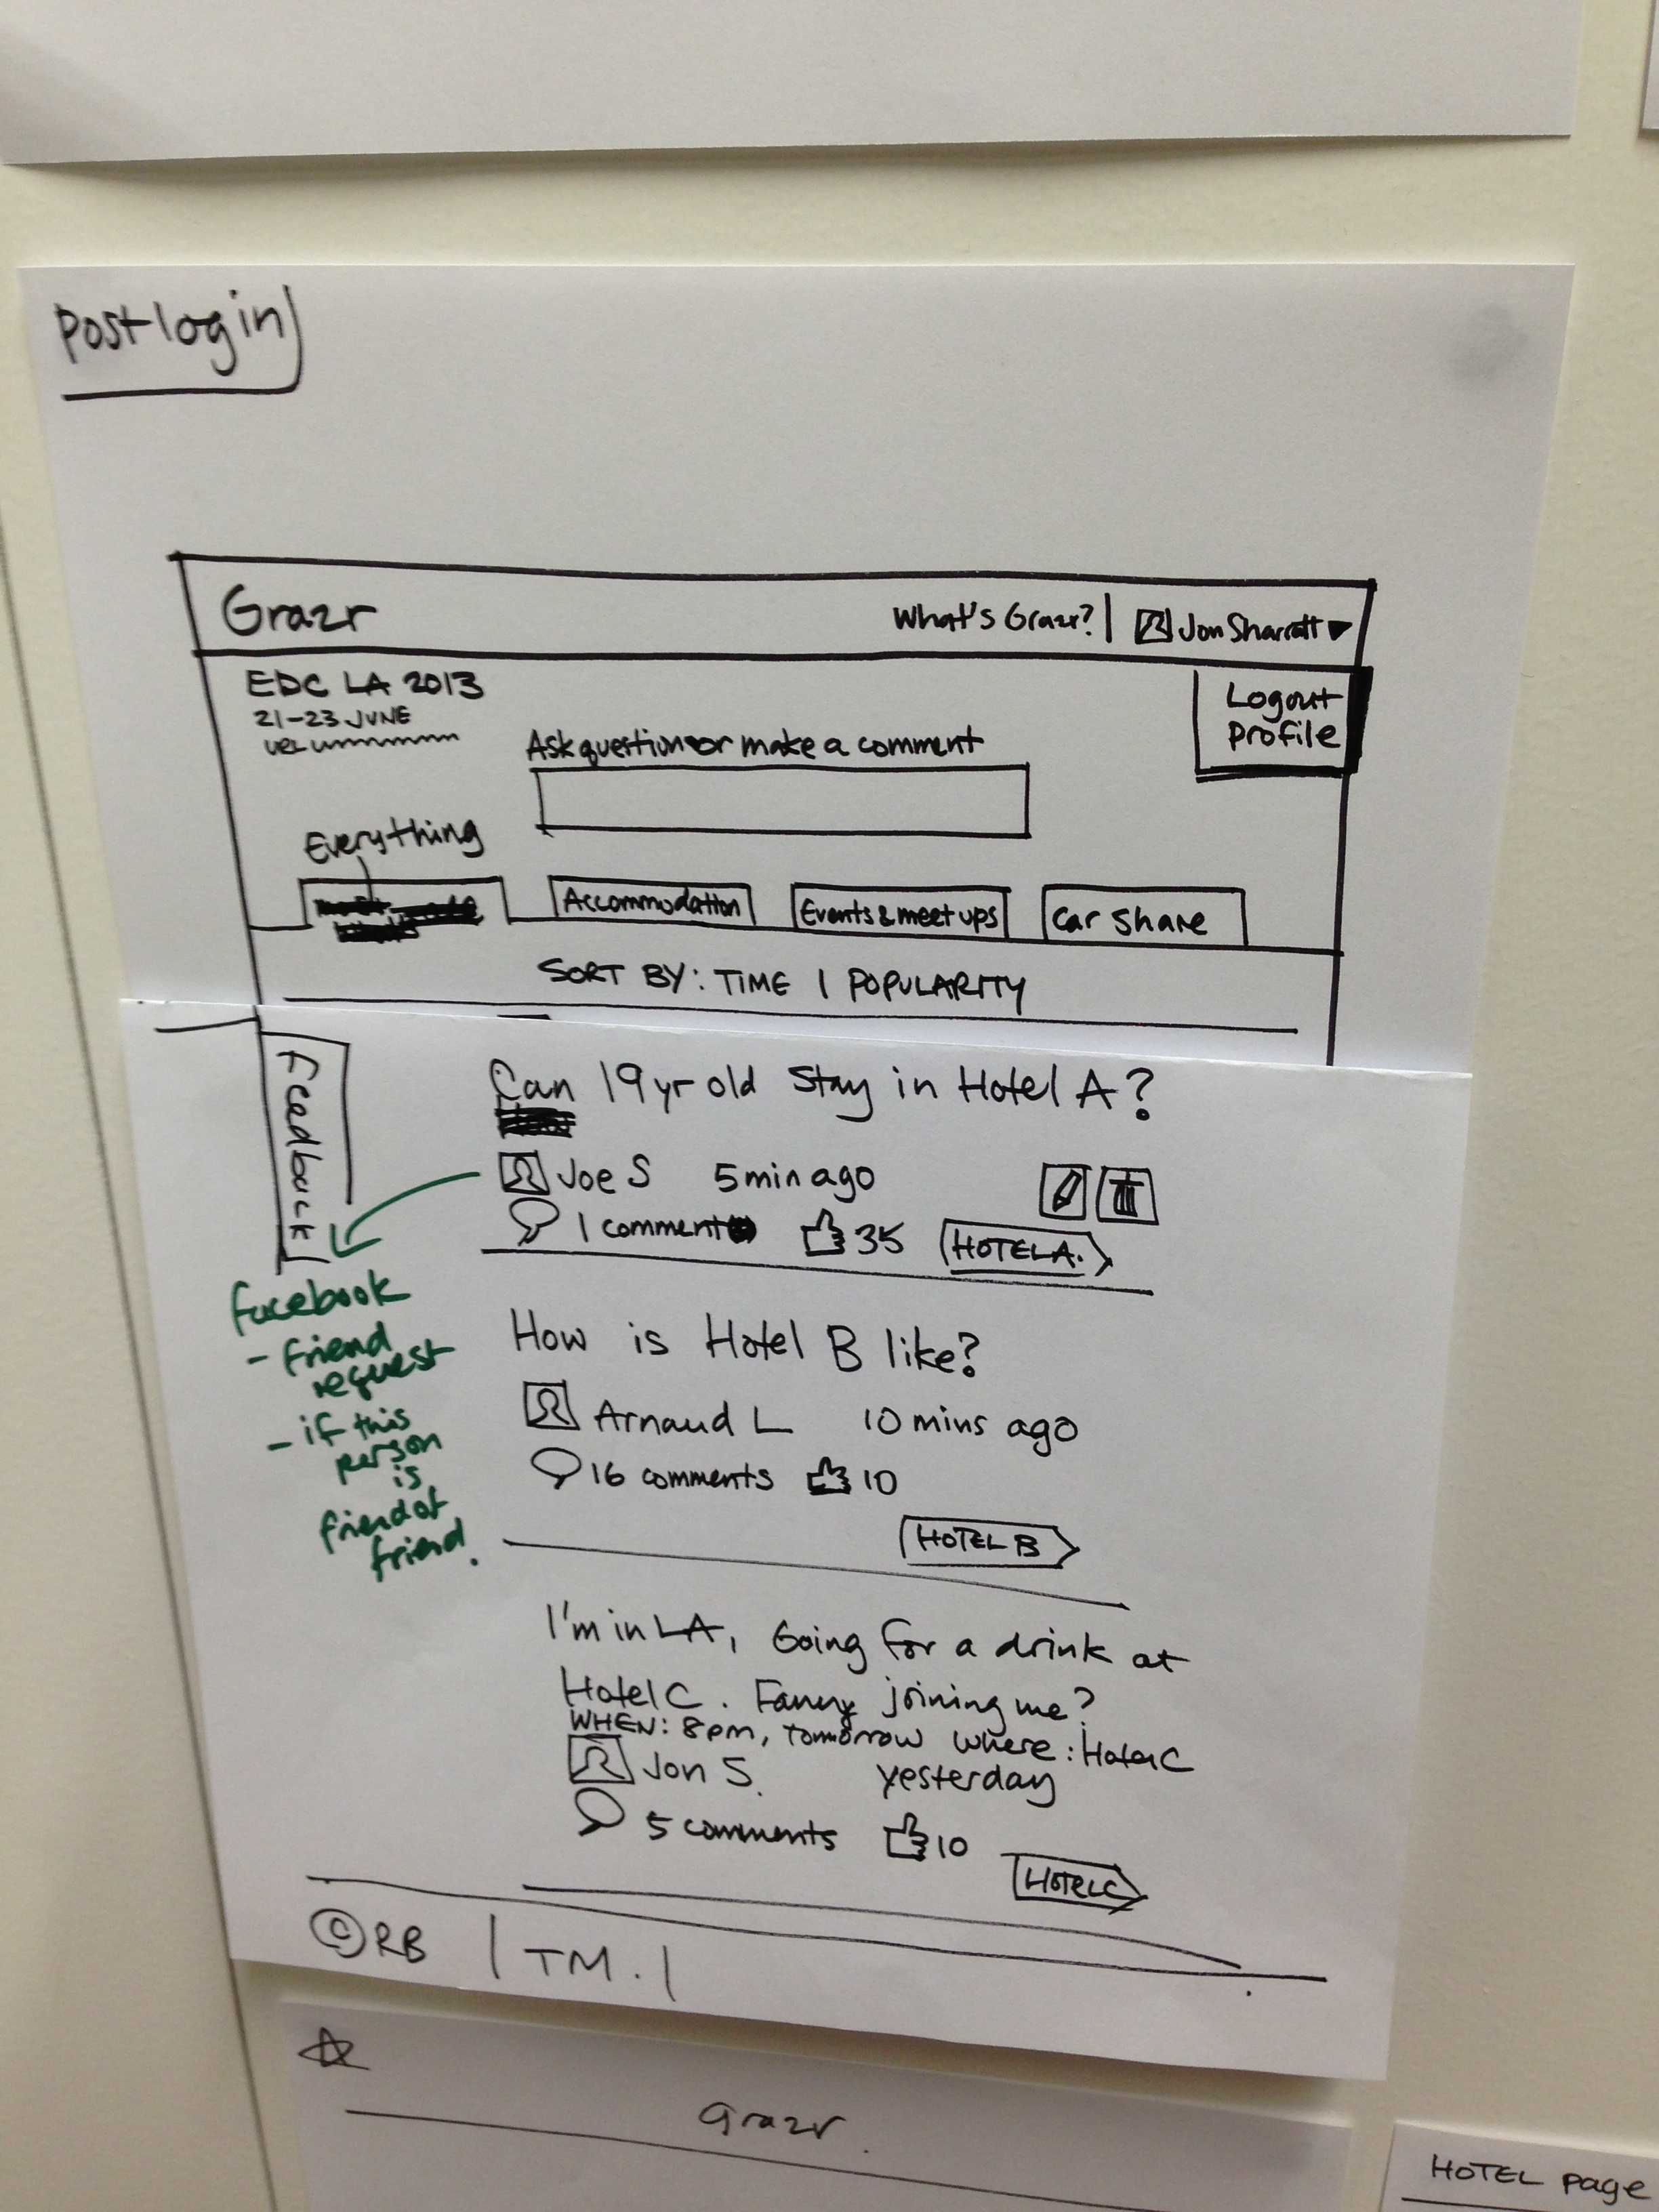 Post login
Grazr
What's Grazr? | Jon Sharratt
Logout
Profile
EDC LA 2013
21-23 JUNE
Ask question or make a comment
Everything
Accommodation
Events & meet ups
Car Share
SORT BY: TIME | POPULARITY
Feedback
Can 19 yr old Stay in Hotel A?
Joe S 5 min ago
1 comment 35 HOTEL A.
facebook
- friend
request
- if this
person
is
friend of
friend.
How is Hotel B like?
Arnaud L 10 mins ago
16 comments 10
HOTEL B
I'm in LA, Going for a drink at
Hotel C. joining me?
WHEN: 8pm, tomorrow where: Hotel C
Jon S. yesterday
5 comments 10
HOTEL C
© RB | TM. |
Grazr
HOTEL page